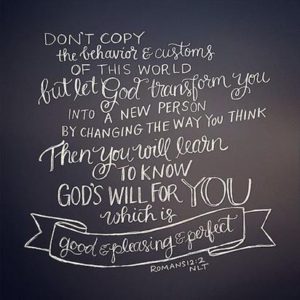 DON'T COPY
the behavior & customs
OF THIS WORLD
but let God transform you
INTO A NEW PERSON
BY CHANGING THE WAY YOU THINK
Then you will learn
TO KNOW
GOD'S WILL FOR YOU
which is
good & pleasing & perfect
ROMANS 12:2
NLT